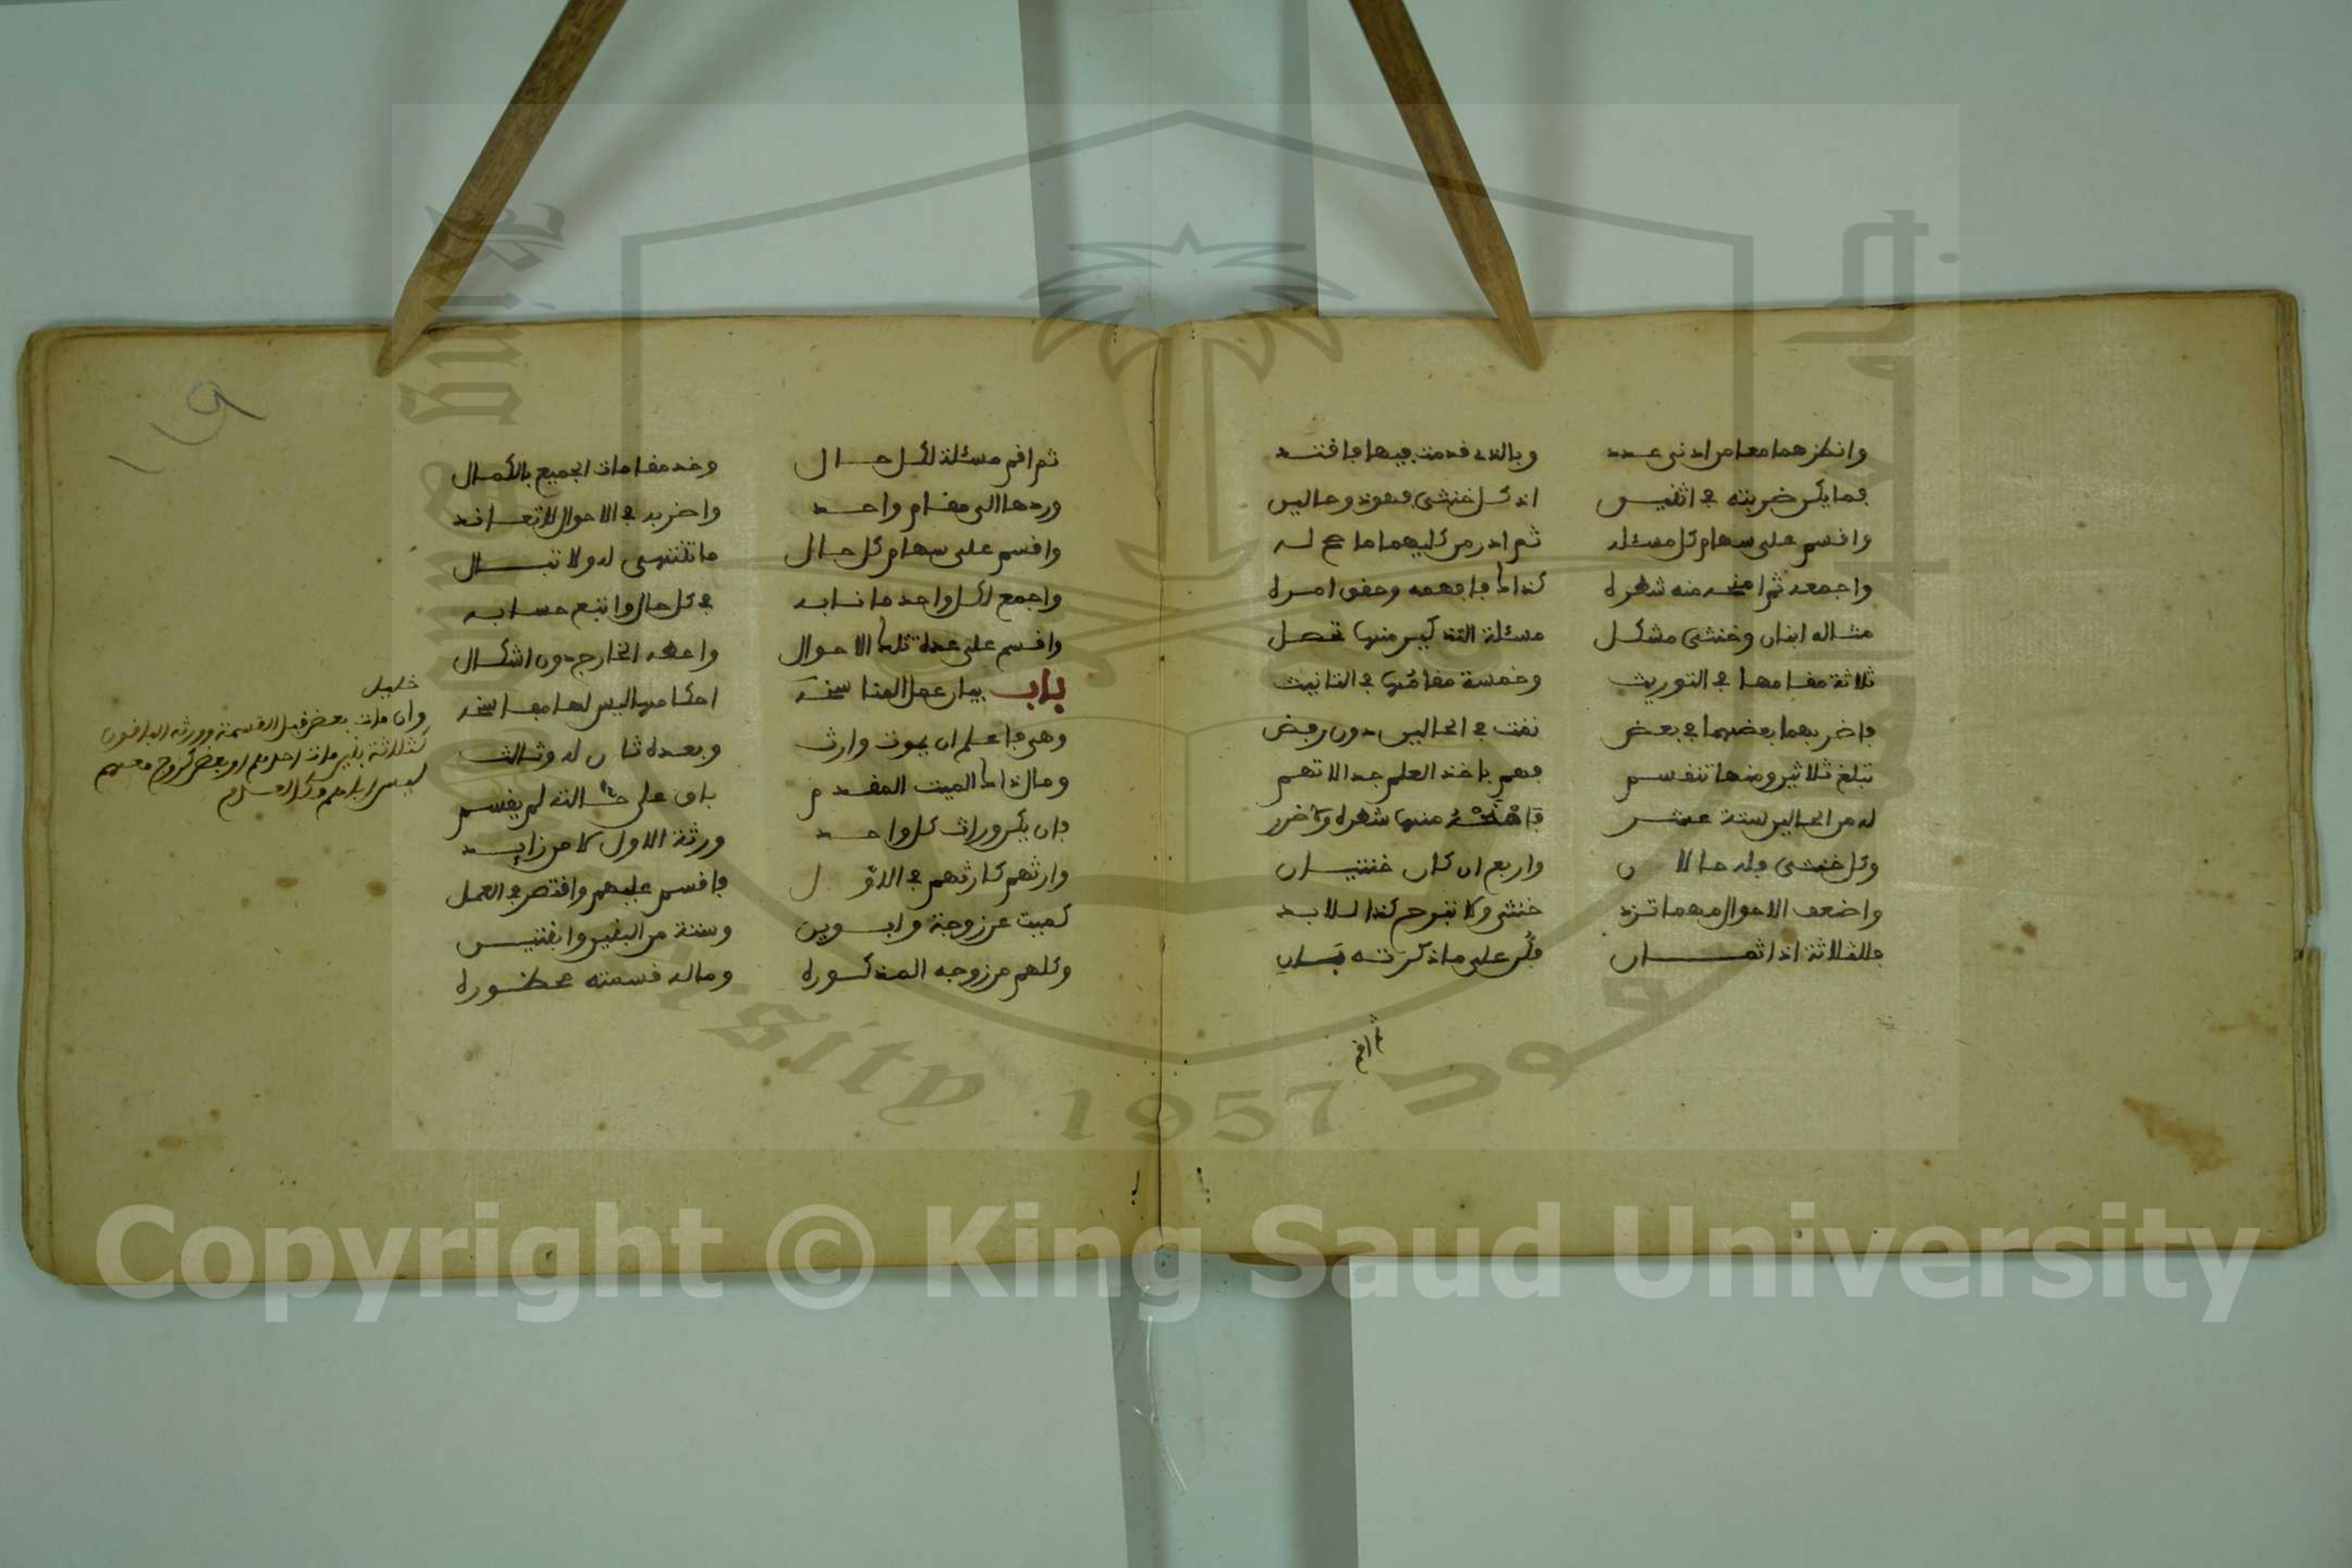 وانظرهما معا من ادنى عدد وبالذي قدمت فيها فاقتد
فما يكن ضربته في اثنين اذ كل خنثى فهو ذو حالين
واقسم على سهام كل مسئله ثم ادر من كليهما ما صح له
واجمعه ثم امنحه منه شطره كذاك فافهمه وحقق امره
مثاله ابنان وخنثى مشكل مسئلة التذكير منها تحصل
ثلاثة مقامها في التوريث وخمسة مقامها في التانيث
فاضربهما بعضهما في بعض نفت في الحالين دون رفض
تبلغ ثلاثين ومنها تنقسم فهم باخذ العلم جدا لا تهم
له من الحالين ستة عشر فامنحه منها شطره ولا ضرر
وكل خنثى فله حالان واربع ان كان خنثيان
واضعف الاحوال مهما تزد خنثى ولا تبرح كذا للابد
فللثلاثة اذا ثمان فكن على ما ذكرته بان
ثم اقم
ثم اقم مسئلة لكل حال وخذ مقامات الجميع بالكمال
وردها الى مقام واحد واضربه في الاحوال لا تعاند
واقسم على سهام كل حال ما تنتهي له ولا تبال
واجمع لكل واحد ما نابه في كل حال واتبع حسابه
واقسم على عدة تلك الاحوال واعطه الخارج دون اشكال
باب بيان عمل المناسخه احكامها ليس لها مفاسخه
وهي فاعلم ان يموت وارث وبعده ثان له وثالث
ومال ذاك الميت المقدم باق على حالته لم يقسم
فان يكن وراث كل واحد ورثة الاول لا من زايد
وارثهم كارثهم في الاول فاقسم عليهم واقتصر في العمل
كميت عن زوجة وابوين وستة من البنين وابنتين
وكلهم من زوجه المذكوره وماله قسمته محظوره
خليل
وان مات بعض قبل القسمة وورثه الباقون
كثلاثة بنين مات احدهم او بعض كزوج معهم
ليس اباهم وكالعدم
Copyright © King Saud University
1957